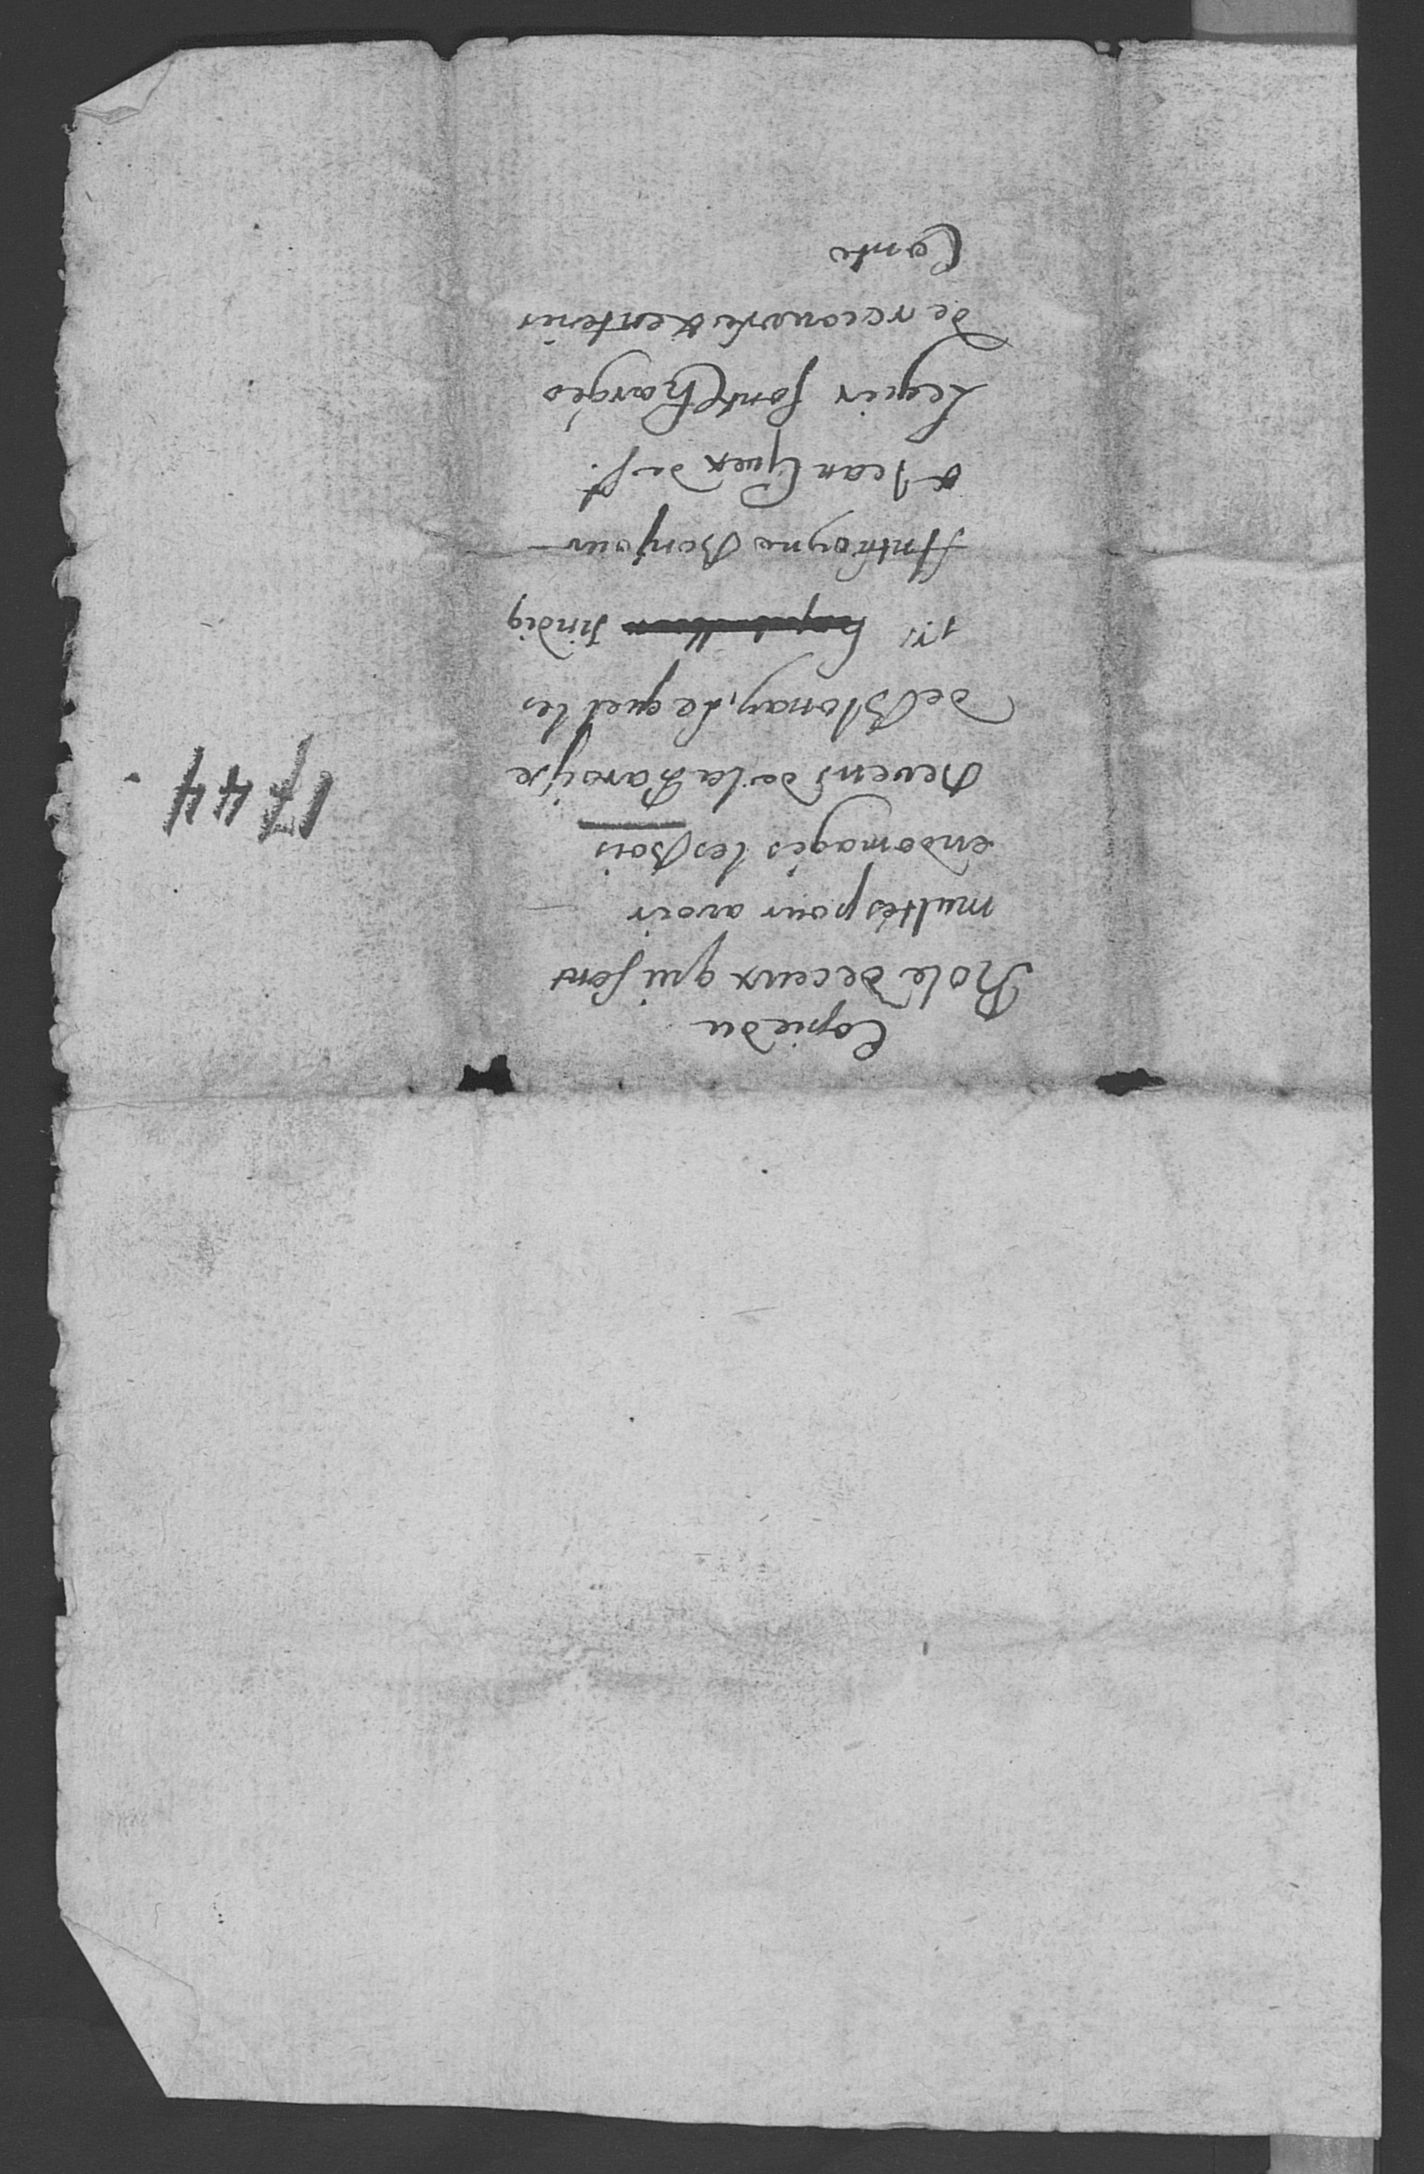 Copie du
Role de ceux qui sont
multés pour avoir
endomagés les Bois
Devens de la Paroisse
de Blonay, Lequel les
srs sindiq
Anthoyne Bonjour
& Jean Guex de st.
Legier sont Chargés
de recouvrer & en tenir
Conte
1744.